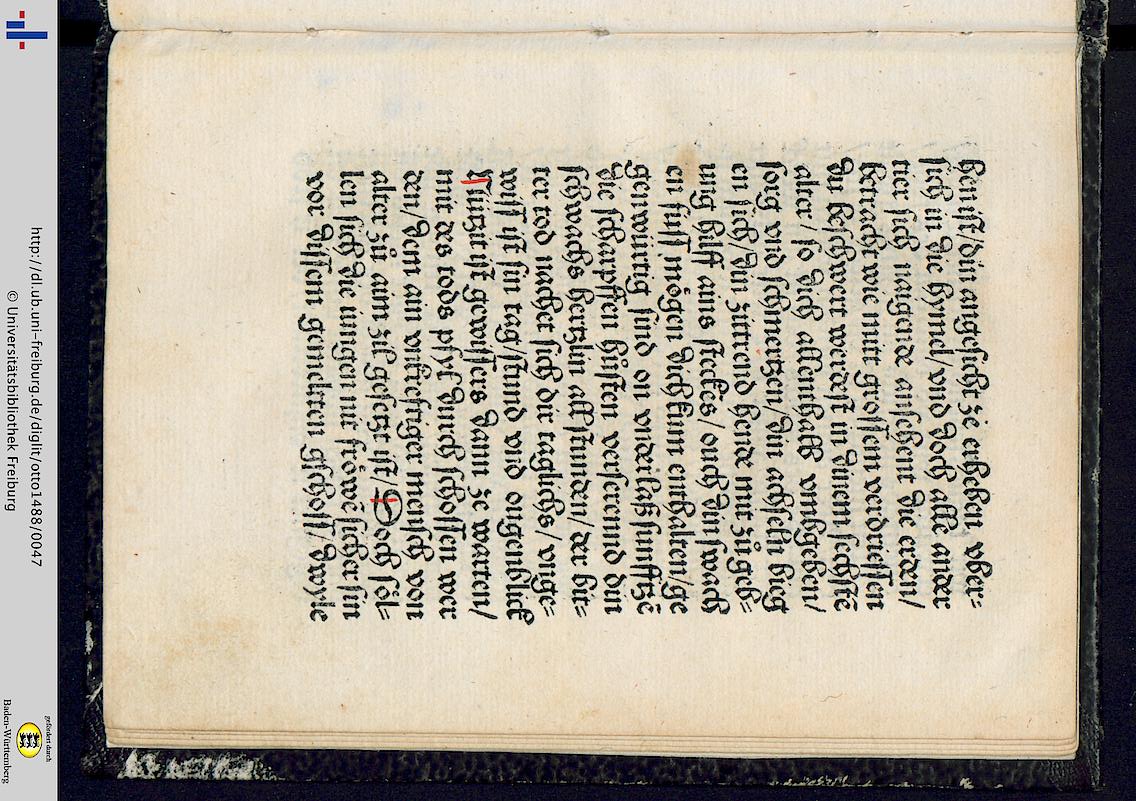 hen ist/ din angesicht ze erheben vber-
sich in die hymel/ vnd doch alle ander
tier sich naigende ansehent die erden/
betracht wie mitt grossem verdriessen
du beschwert werdest in dinem sechstē
alter/ so dich allenthalb vmbgeben/
sorg vnd schmertzen/ din achseln bieg
en sich/ din zittrend hende mit zů geb-
ung hilff ains steckes/ ouch din swach
en fuss mögen dich kum enthalten/ ge
genwürtig sind on vnderlaß sunfftzē
die scharpffen hůsten verserend din
schwachs hertzlin all stunden/ der bit-
ter tod nachet sich dir taglichs/ vnge-
wiss ist sin tag/ stund vnd ougenblick
Nützit ist gewissers dann ze warten/
mit des tods pfyl durch schossen wer
den/ dem ain vnbrestiger mensch von
alter zů aim zil gesetzt ist/ Doch söl-
len sich die iungen nit fröwē sicher sin
vor dissem gemelten gschoss/ dwyle
http://dl.ub.uni-freiburg.de/diglit/otto1488/0047
© Universitätsbibliothek Freiburg
gefördert durch
Baden-Württemberg